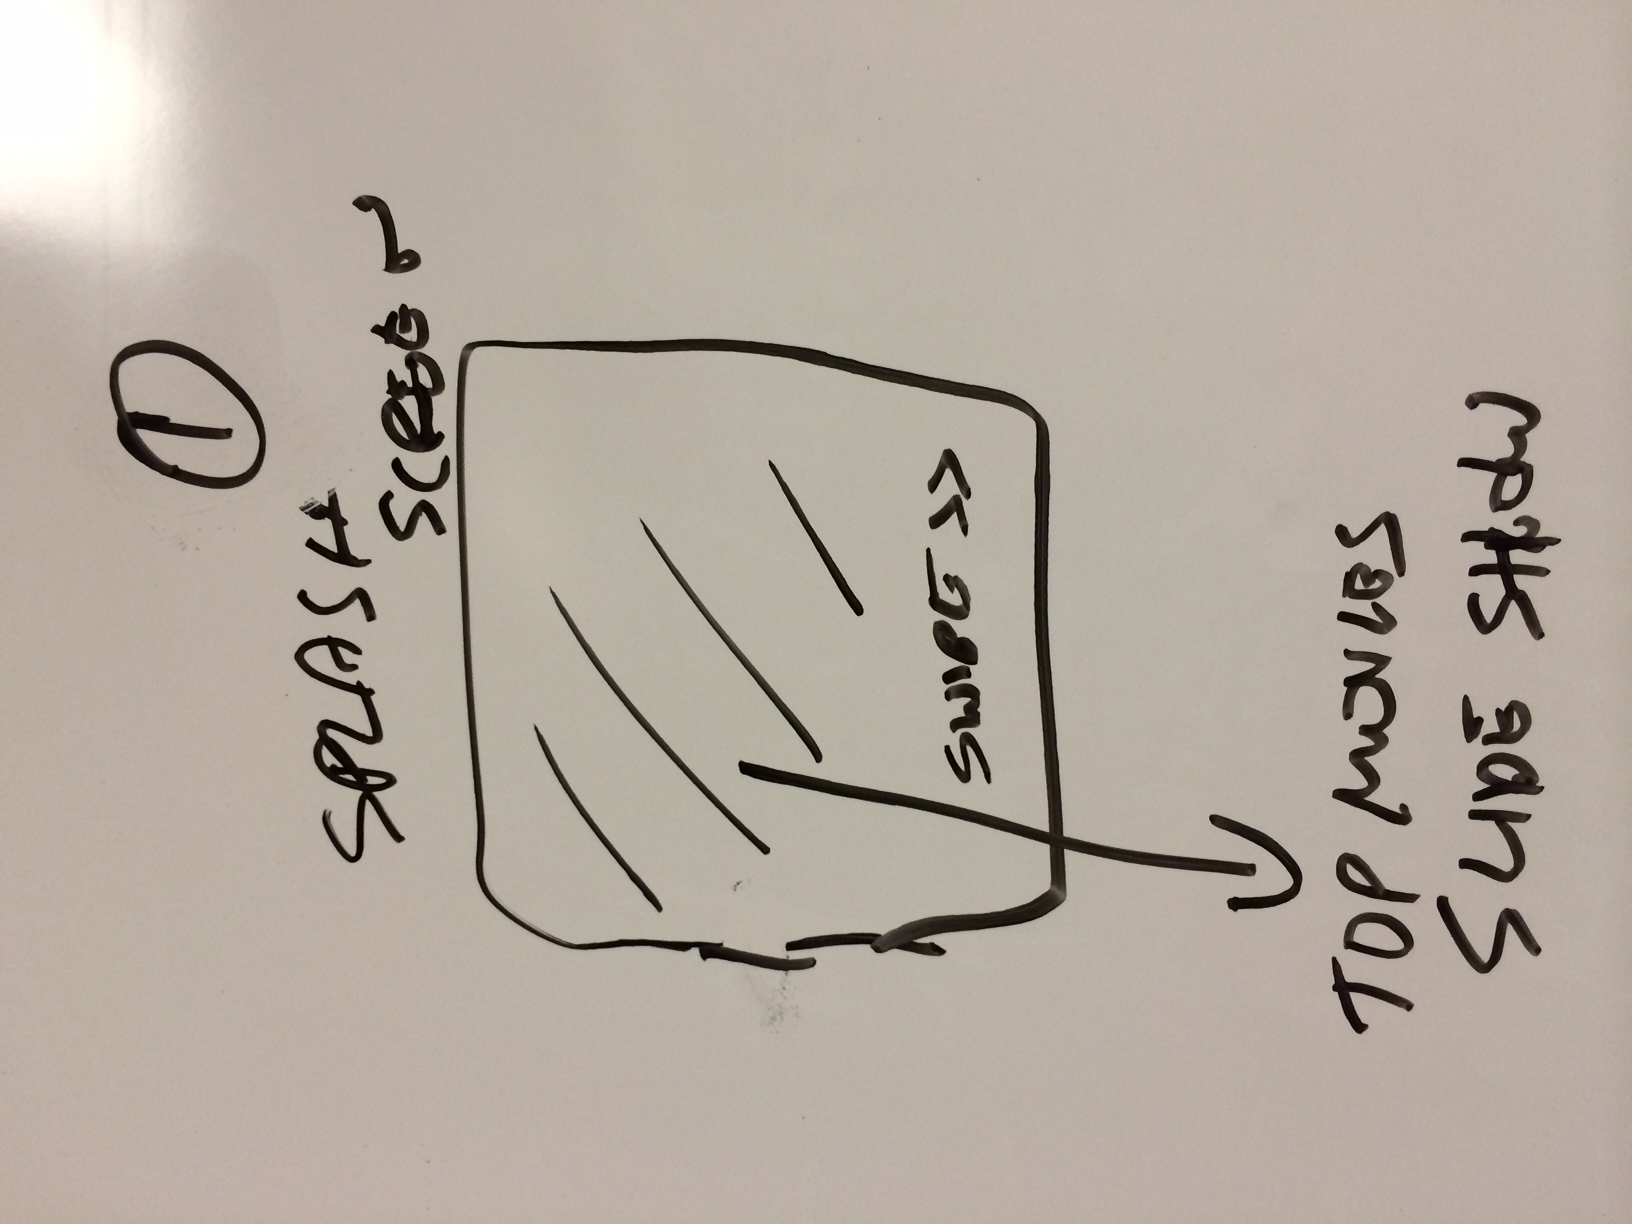 1
SPLASH
SCREEN
SWIPE >>
TOP MOVIES
SLIDE SHOW